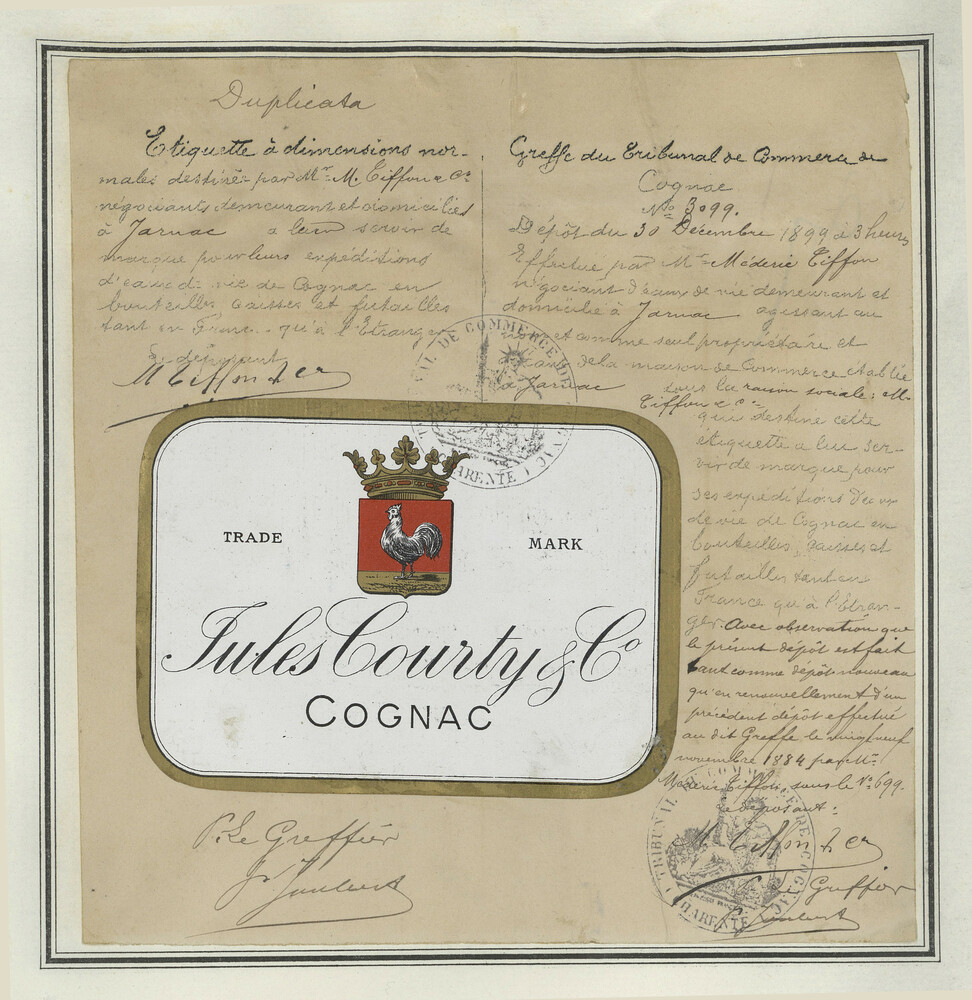 Duplicata
Etiquette à dimensions nor-
males destinée par Mr. M. Tiffon & Co
négociants demeurant et domiciliés
à Jarnac à leur servir de
marque pour leurs expéditions
d'eaux de vie de Cognac en
bouteilles caisses et futailles
tant en France qu'à l'Etranger
Le déposant
M Tiffon & Co
Greffe du Tribunal de Commerce de
Cognac
No 3099.
Dépôt du 30 Décembre 1899 à 3 heures
Effectué par Mr. Médéric Tiffon
négociant d'eaux de vie demeurant et
domicilié à Jarnac agissant au
et comme seul propriétaire et
de la maison de Commerce établie
à Jarnac sous la raison sociale: M.
Tiffon & Co.
qui destine cette
étiquette à lui ser-
vir de marque pour
ses expéditions d'eaux
de vie de Cognac en
bouteilles, caisses et
futailles tant en
France qu'à l'Etran-
ger. Avec observation que
le présent dépôt est fait
tant comme dépôt nouveau
qu'en renouvellement d'un
précédent dépôt effectué
au dit Greffe le vingt neuf
novembre 1884 par Mr.
Médéric Tiffon, sous le No 699.
Le déposant:
M Tiffon & Co
Le Greffier
TRIBUNAL DE COMMERCE DE COGNAC
CHARENTE
TRADE MARK
Jules Courty & Co
COGNAC
P. Le Greffier
TRIBUNAL DE COMMERCE COGNAC
CHARENTE